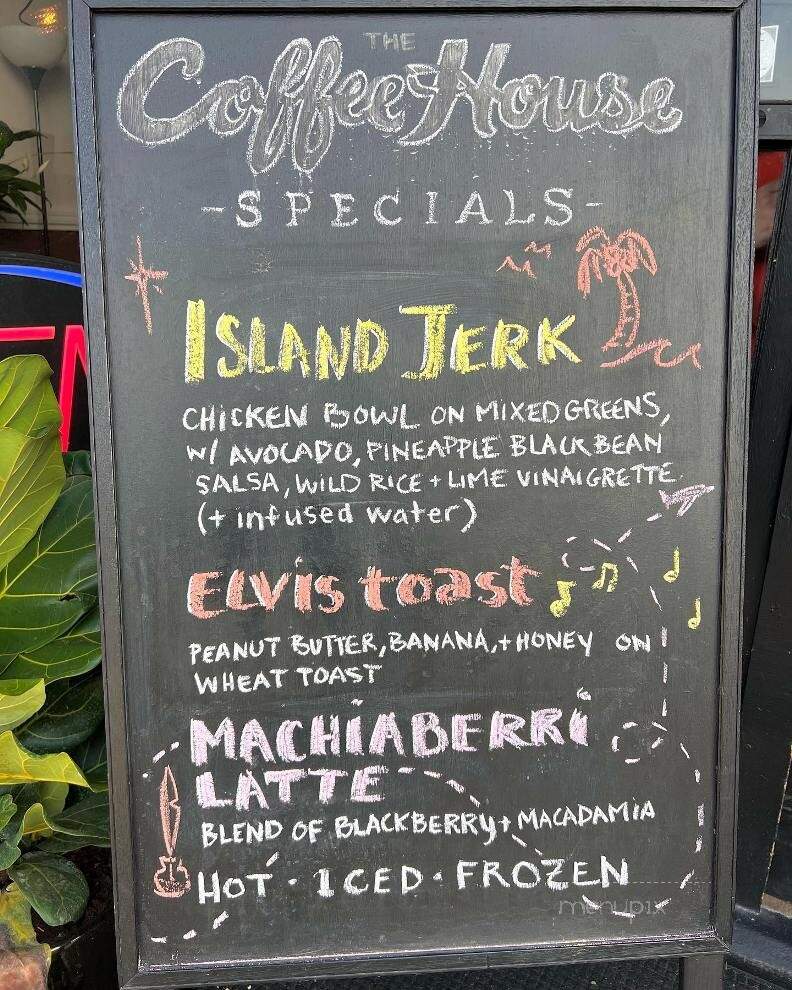 THE
Coffee House
-SPECIALS-
ISLAND JERK
CHICKEN BOWL ON MIXED GREENS,
W/ AVOCADO, PINEAPPLE BLACK BEAN
SALSA, WILD RICE + LIME VINAIGRETTE
(+ infused water)
ELVIS toast
PEANUT BUTTER, BANANA, + HONEY ON
WHEAT TOAST
MACHIABERRi
LATTE
BLEND OF BLACKBERRY + MACADAMIA
HOT · ICED · FROZEN
menupix